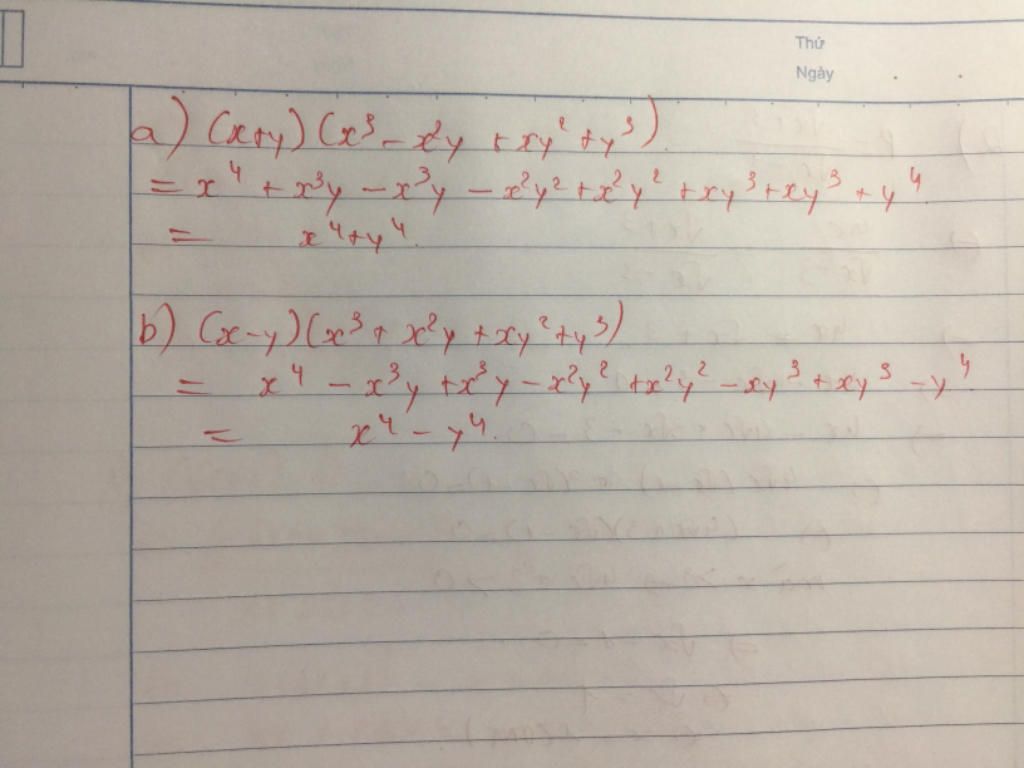 Thứ
Ngày
a) (x+y)(x³ - x²y + xy² + y³)
= x⁴ + x³y - x³y - x²y² + x²y² + xy³ + xy³ + y⁴
= x⁴ + y⁴
b) (x-y)(x³ + x²y + xy² + y³)
= x⁴ - x³y + x³y - x²y² + x²y² - xy³ + xy³ - y⁴
= x⁴ - y⁴